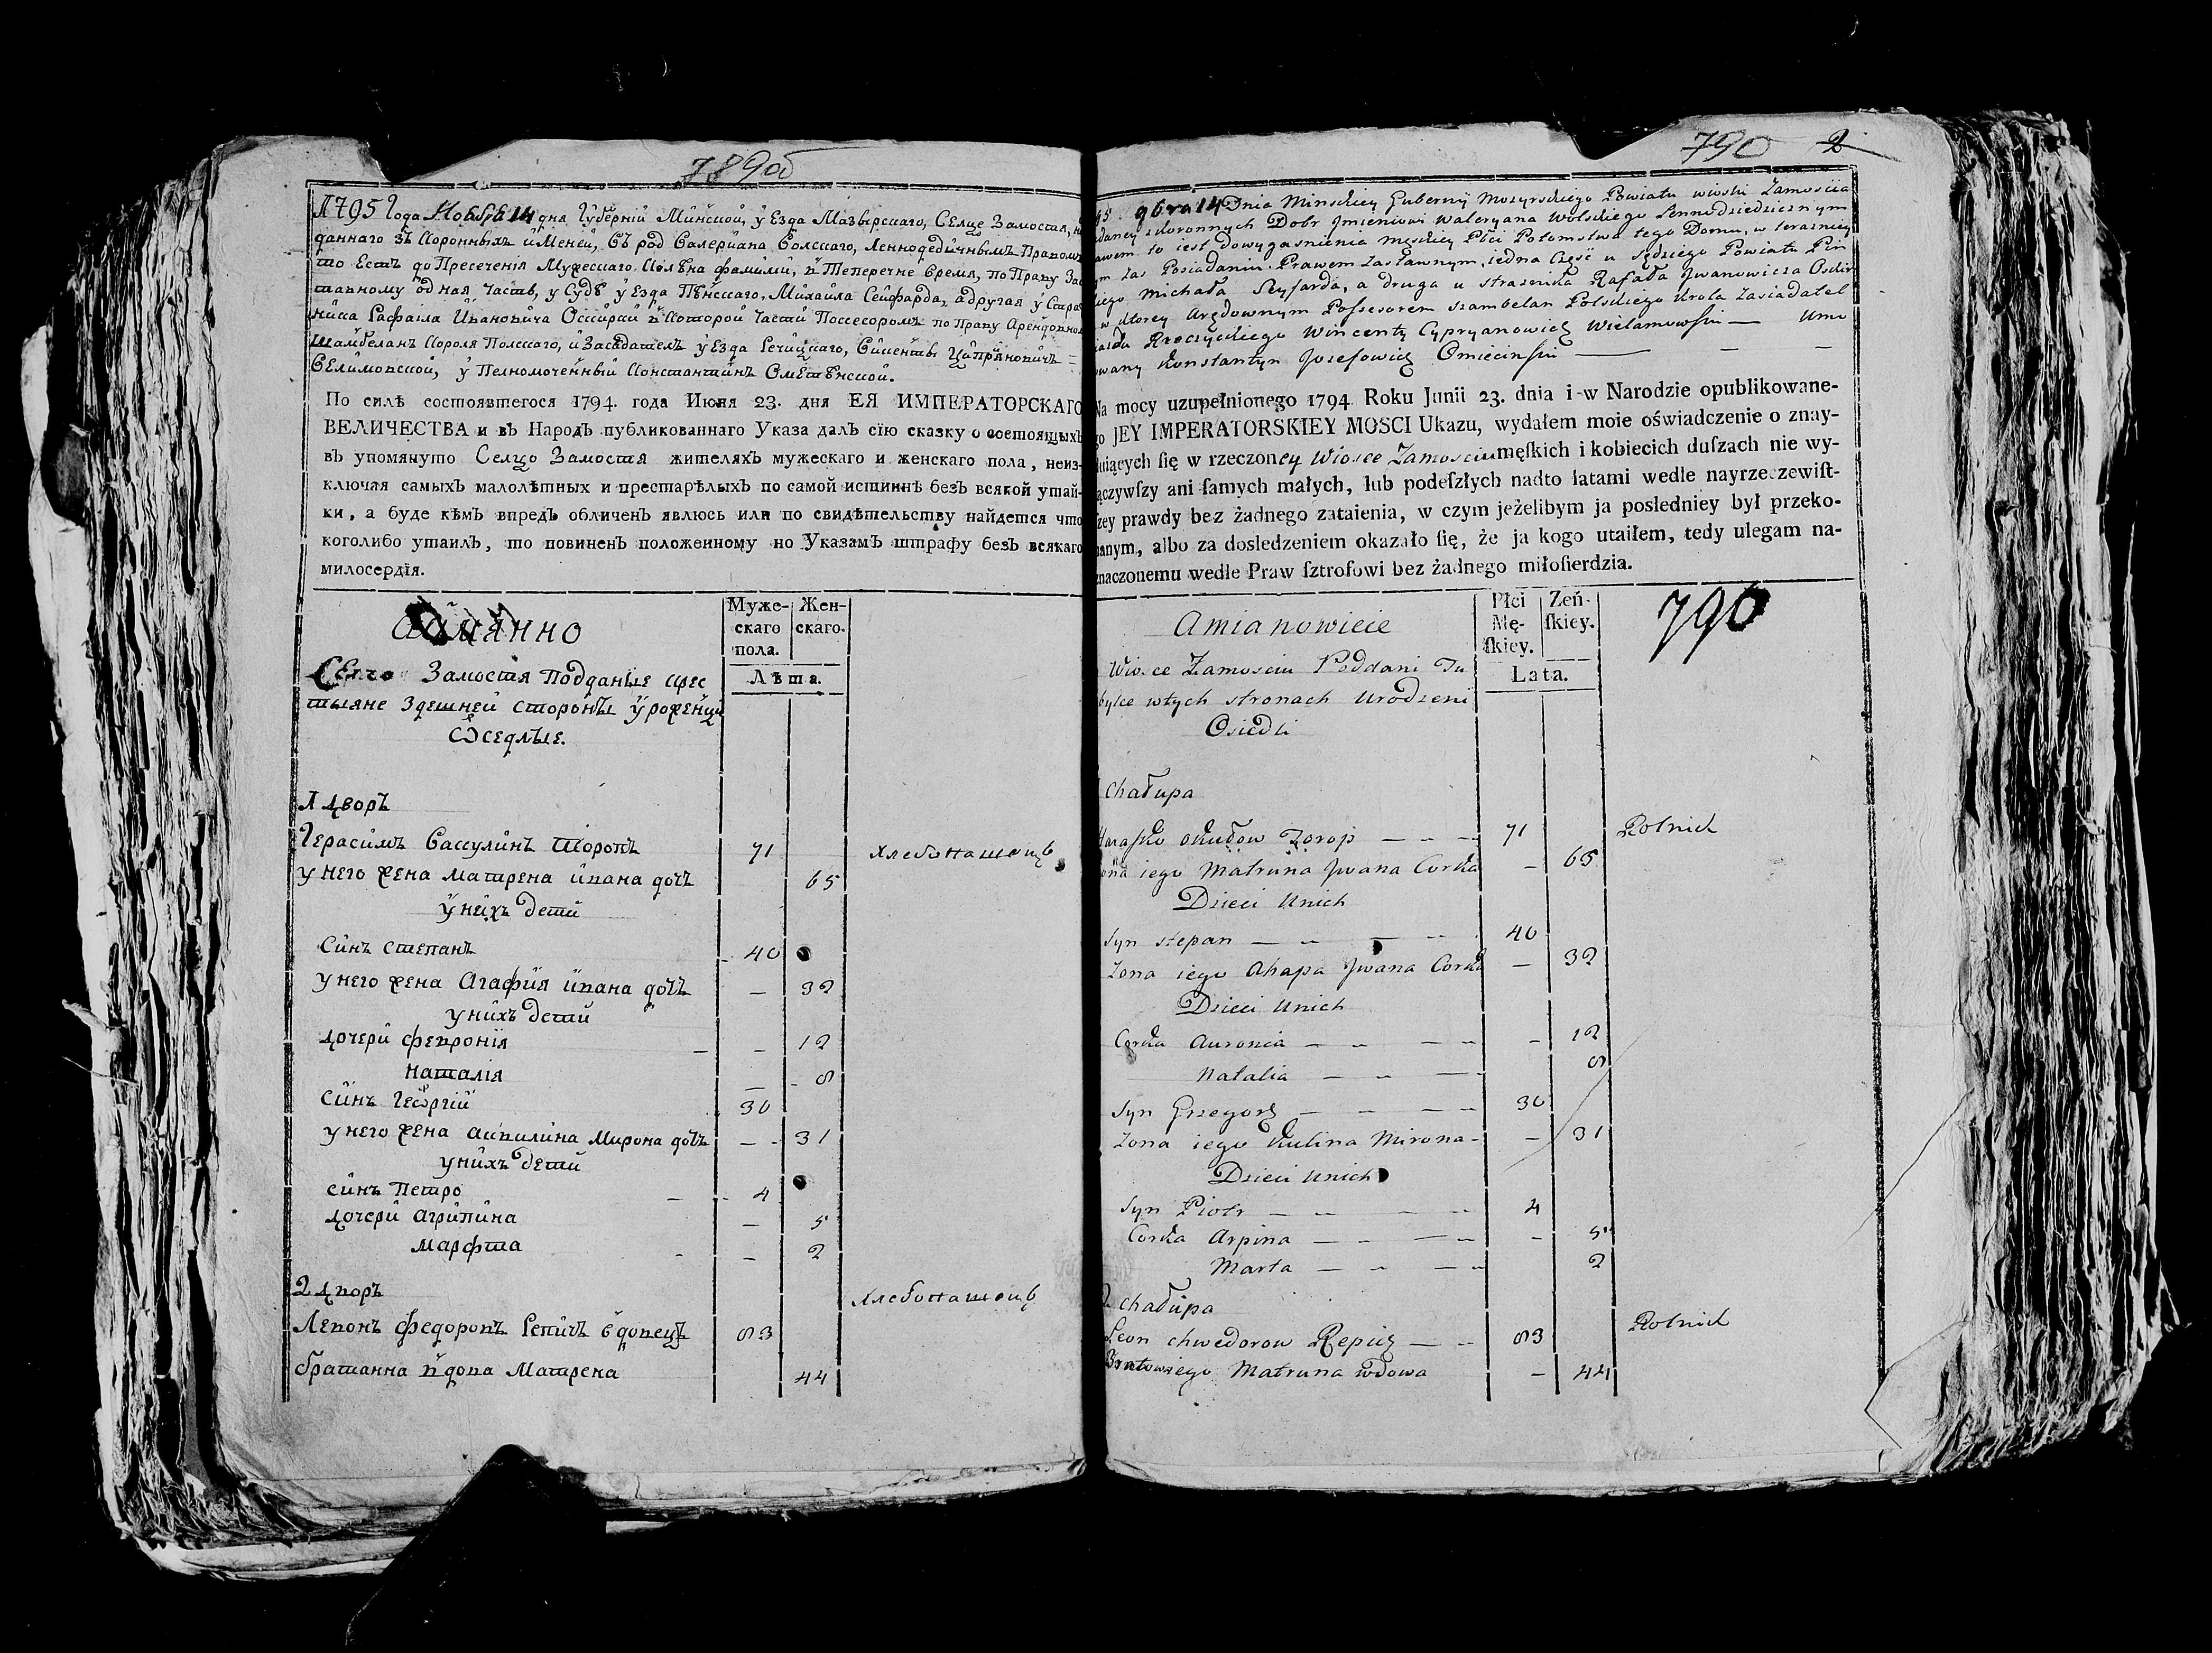 789об
1795 Года Ноября 14 дня Губерній Минской, уЕзда Мазырскаго, СЕлце Замостя,
даннаго зъ Коронныхъ имЕней, въ род Валериана Волскаго, Леннодедичнымъ Правомъ
то Естъ до Пресеченія Мужескаго Колѣна фамиліи, в Теперечне время, по Праву За
ставному одная часть, у Судѣ уЕзда Пѣнскаго, Михаила Сейфарда, адругая у Страж
ника Рафаила Ивановича Оскирки в Которой части Поссесоромъ по Праву Арендовно
Шамбеланъ Короля Полскаго, и Заседатель уЕзда Речицкаго, Викентъ Ципріяновичъ =
ВЕламовской, у Пелномоченный Константинъ Ометѣнской.
По силѣ состоявшегося 1794. года Июня 23. дня ЕЯ ИМПЕРАТОРСКАГО
ВЕЛИЧЕСТВА и въ Народъ публикованнаго Указа далъ сію сказку о состоящыхъ
въ упомянуто Селцо Замостя жителяхъ мужескаго и женскаго пола, неиз-
ключая самыхъ малолѣтныхъ и престарѣлыхъ по самой истиннѣ безъ всякой утай-
ки, а буде кѣмъ впредъ обличенъ явлюсь или по свидѣтельству найдется что
коголибо утаилъ, то повиненъ положенному по Указамъ штрафу безъ всякаго
милосердія.
Аимянно
Муже-
скаго
пола.
Жен-
скаго.
Лѣта.
Селцо Замостя Подданые крес
тьяне Здешней стороны уроженци
Оседлые.
1 дворъ
Герасимъ Вакулинъ Шоропъ 71 хлебопашецъ
у него жена матрена ивана дочъ 65
у нихъ дети
Синъ степанъ 40
у него жена Агафия ивана дочъ — 32
у нихъ дети
дочери февронія — — 12
наталія — 8
Синъ Георгій 30
у него жена акилина Мирона дочъ — 31
у нихъ дети
синъ Петро — 4
дочери агрипина — 5
марфта — 2
2 дворъ хлебопашецъ
Левонъ федоровъ Репичъ вдовецъ 83
братанна вдова Матрена 44
790 2
95 9bra 14 Dnia Minskiey Guberny Mozyrskiego Powiatu wioski Zamoscia
daney zkoronnych Dobr Jmieniowi Waleryana Wolskiego Lennodziedzicznym
awem to iest dowygasnienia Męskiey Płci Potomstwa tego Domu, w terazniey
m zas Posiadaniu Prawem zastawnym, iedna Część u Sędziego Powiatu Pin
kiego Michała Seyfarda, a druga u straznika Rafała Jwanowicza Oskir
w ktorey Arędownym Possesorem szambelan Polskiego Krola Zasiadatel
iazdu Rzeczyckiego Wincenty Cypryanowicz Wielamowski — Umo
owany Konstantyn Jozefowicz Omiecinski — — —
Na mocy uzupełnionego 1794 Roku Junii 23. dnia i w Narodzie opublikowane-
go JEY IMPERATORSKIEY MOSCI Ukazu, wydałem moie oświadczenie o znay-
duiących ſię w rzeczoney Wiosce Zamosciu męſkich i kobiecich duſzach nie wy-
ączywſzy ani ſamych małych, lub podeſzłych nadto latami wedle nayrzeczewiſt-
zey prawdy bez żadnego zataienia, w czym jeżelibym ja posledniey był przeko-
nanym, albo za dosledzeniem okazało ſię, że ja kogo utaiłem, tedy ulegam na-
znaczonemu wedle Praw ſztrofowi bez żadnego miłoſierdzia.
Amianowicie
Płci
Mę-
ſkiey.
Zeń-
ſkiey.
Lata.
790
Wiosce Zamosciu Poddani Tu
bylce wtych stronach Urodzeni
Osiedli
1 Chałupa
Harasko Okułow Zorop — — — 71 Rolnik
ona iego Matruna Jwana Corka — 65
Dzieci Unich
Syn stepan — — — — 40
Zona iego Ahapa Jwana Corka — 32
Dzieci Unich
Corka Auronia — — — — — 12
Natalia — — — 8
Syn Grzegorz — — — — 30
Zona iego Kulina Mirona — — 31
Dzieci Unich
Syn Piotr — — — — 4
Corka Arpina — — — — — 5
Marta — — — — 2
2 Chałupa
Leon Chwedorow Repicz — — 83 Rolnik
Bratowa iego Matruna wdowa — 44